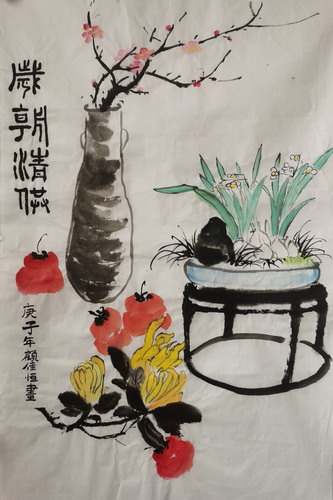 歲朝清供
庚子年顧佳恒畫